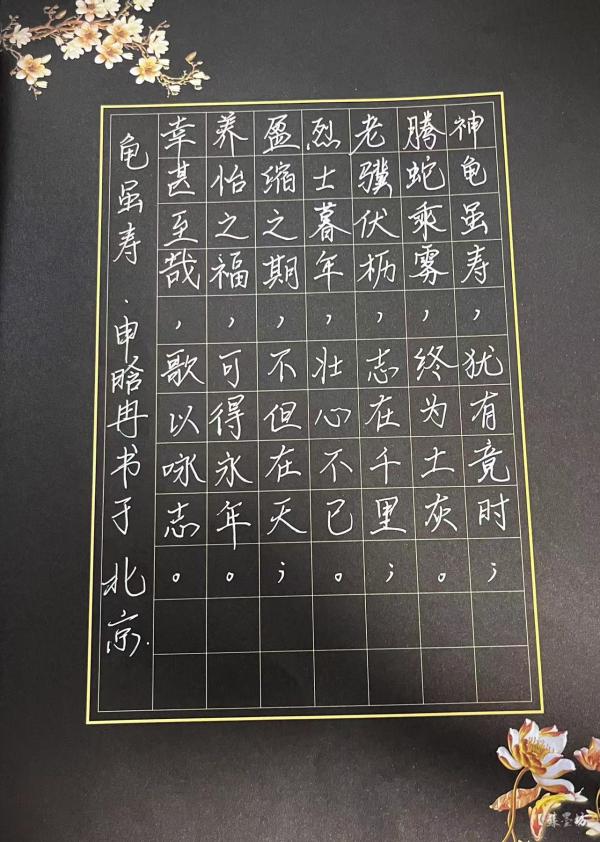 神龟虽寿，犹有竟时；
腾蛇乘雾，终为土灰。
老骥伏枥，志在千里；
烈士暮年，壮心不已。
盈缩之期，不但在天；
养怡之福，可得永年。
幸甚至哉，歌以咏志。
龟虽寿．申晗冉书于北京．